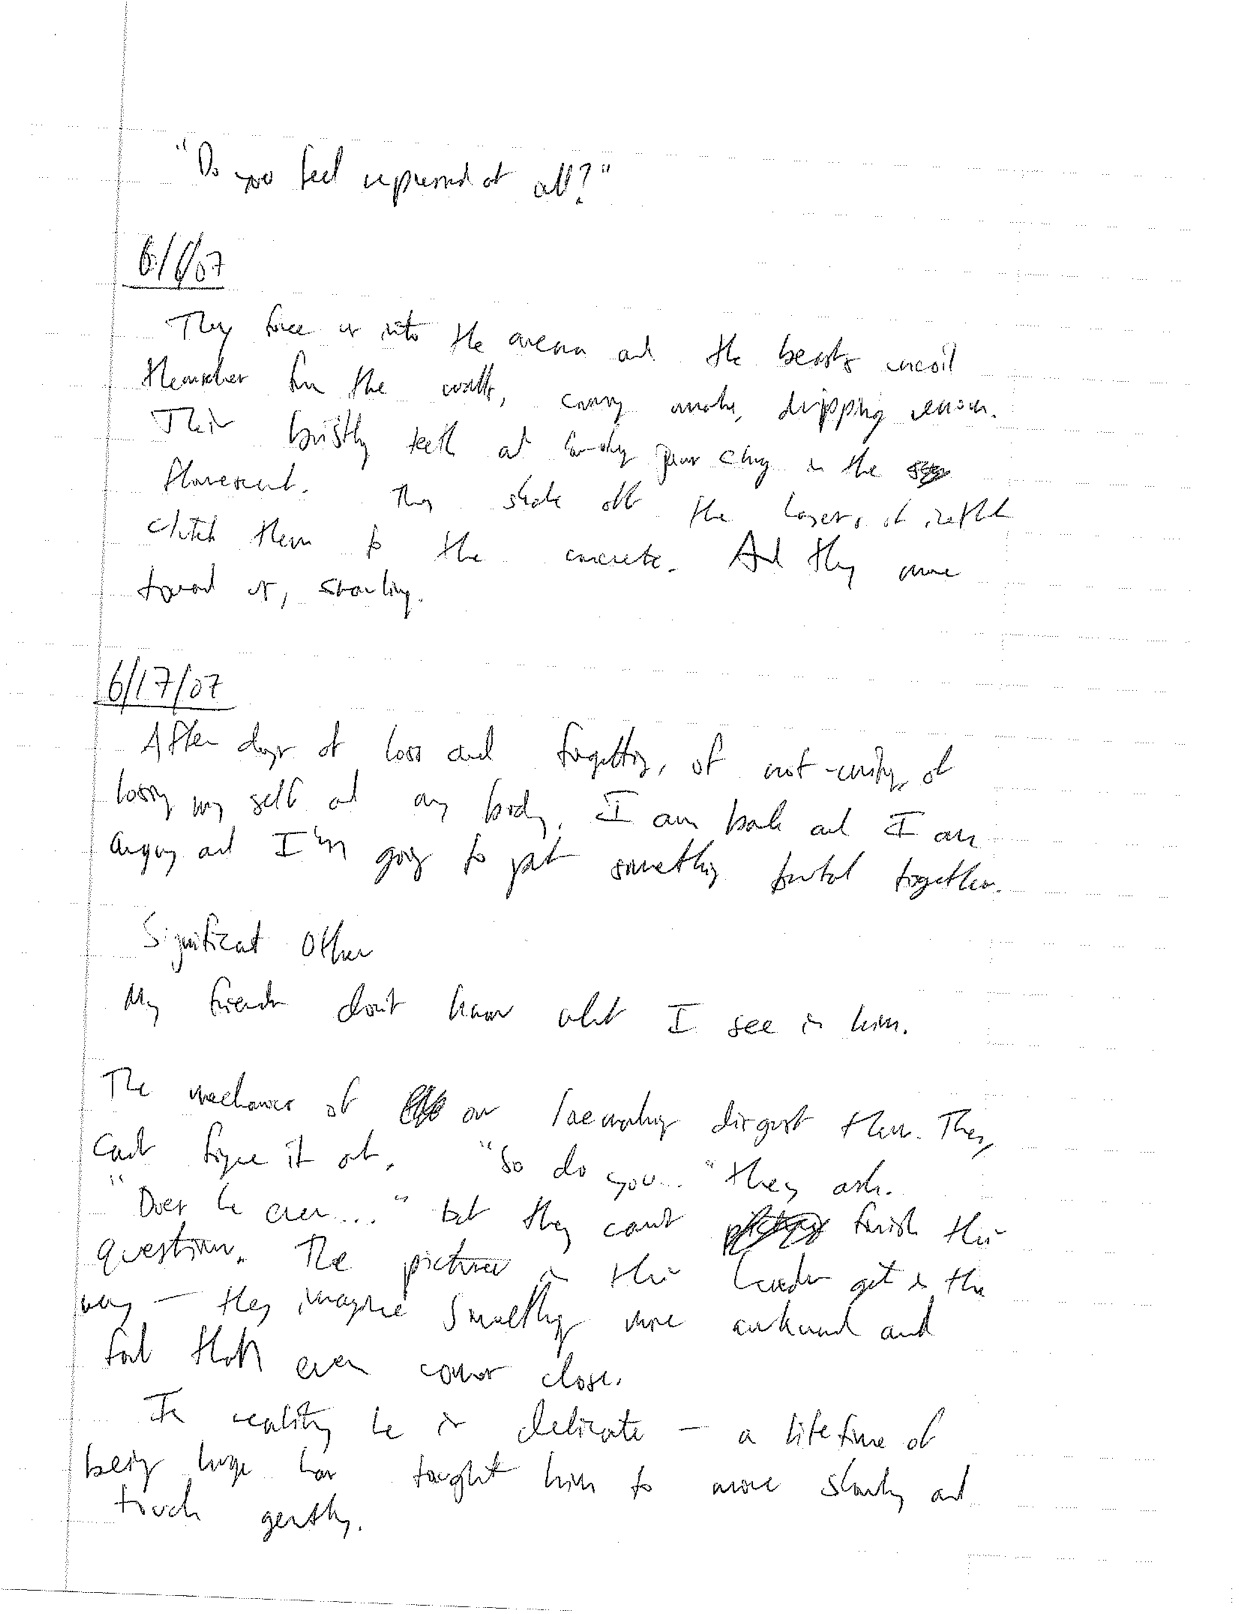 "Do you feel repressed at all?"
6/1/07
They force us into the arena and the beasts uncoil
themselves from the walls, dripping venom.
Their bristly teeth and jaws in the
flourescent. They shake off the
clutch them to the concrete. And they move
toward us, snarling.
6/17/07
After days of loss and forgetting, of not-writing, of
losing my self and my body, I am back and I am
angry and I'm going to put something brutal together.
Significant Other
My friends don't know what I see in him.
The mechanics of our lovemaking disgust them. They
can't figure it out. "So do you..." they ask.
"Does he ever...." but they can't finish their
question. The pictures in their heads get in the
way — they imagine something more awkward and
foul than even comes close.
In reality he is delicate — a lifetime of
being huge has taught him to move slowly and
touch gently.